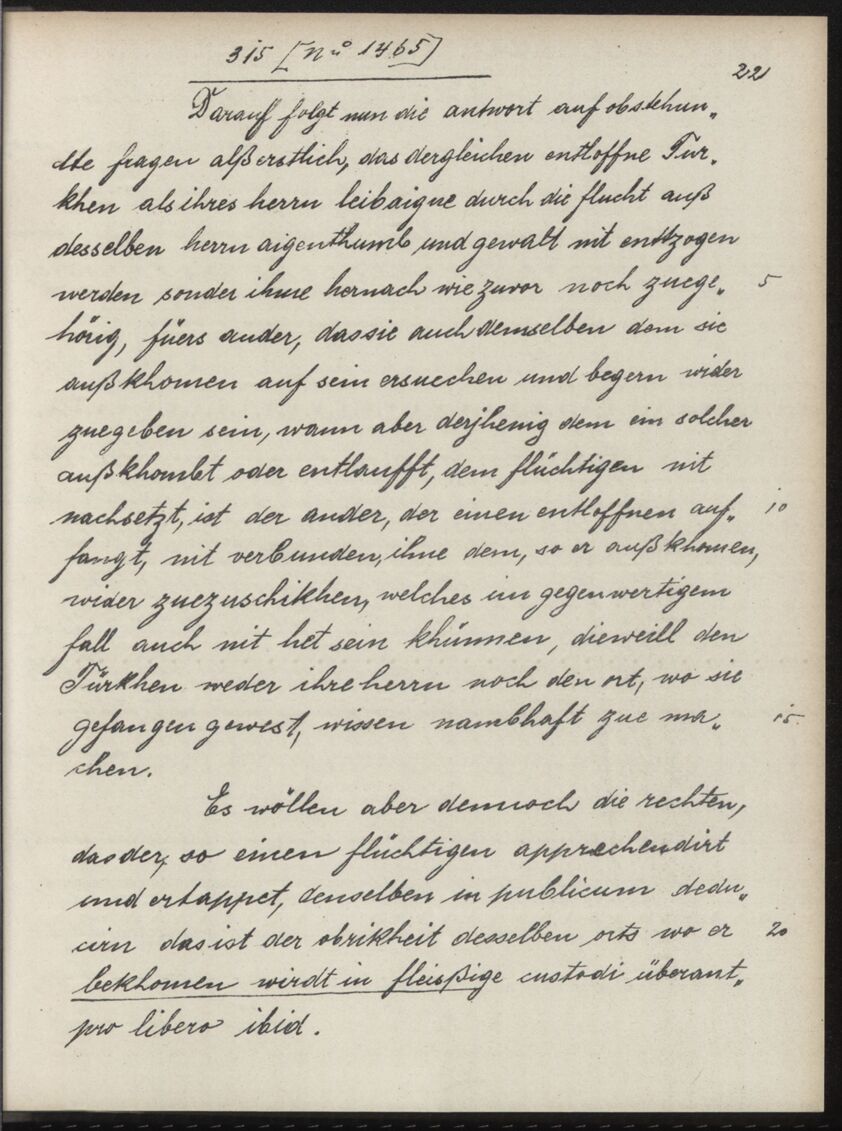 315 [No 1465]
221
Darauf folgt nun die antwort auf obstehun„
dte fragen alß erstlich, das dergleichen entloffne Tur„
khen als ihres herrn leibaigne durch die flucht auß
desselben herrn aigenthumb und gewalt nit entzogen
werden sonder ihme hernach wie zuvor noch zuege„ 5
hörig, füers ander, das sie auch demselben dem sie
außkhomen auf sein ersuechen und begern wider
zuegeben sein, wann aber derjhenig dem ein solcher
außkhombt oder entlaufft, dem flüchtigen nit
nachsetzt, ist der ander, der einen entloffnen auf„ 10
fangt, nit verbunden, ihne dem, so er außkhomen,
wider zuezuschikhen, welches im gegenwertigem
fall auch nit het sein khünnen, dieweill den
Türkhen weder ihre herrn noch den ort, wo sie
gefangen gewest, wissen nambhaft zue ma„ 15
chen.
Es wöllen aber dennoch die rechten,
das der, so einen flüchtigen apprechendirt
und ertappet, denselben in publicum dedu„
cirn das ist der obrikheit desselben orts wo er 20
bekhomen wirdt in fleisßige custodi überant„
pro libero ibid.